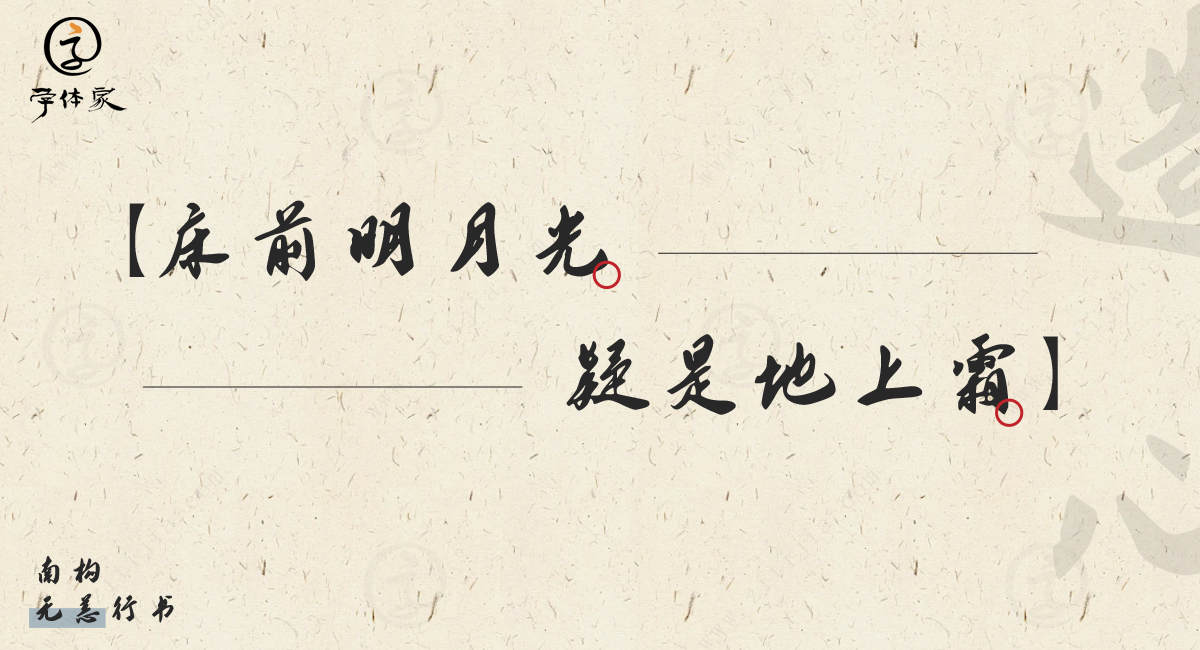 字体家
【床前明月光。
疑是地上霜。】
南构
无恙行书